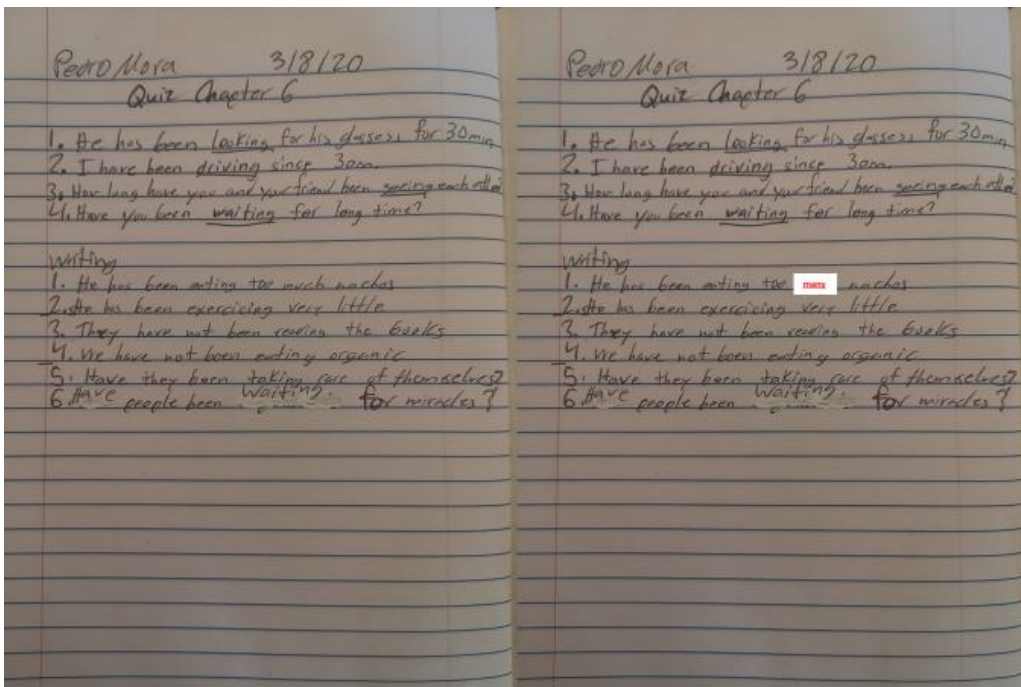 Pedro Mora 3/8/20
Quiz Chapter 6
1. He has been looking for his glasses, for 30 min
2. I have been driving since 3am.
3. How long have you and your friend been seeing each other
4. Have you been waiting for long time?
Writing
1. He has been eating too much nachos
2. He has been exercicing very little
3. They have not been reading the books
4. We have not been eating organic
5. Have they been taking care of themselves?
6 Have people been Waiting. for miracles?
Pedro Mora 3/8/20
Quiz Chapter 6
1. He has been looking for his glasses, for 30 min
2. I have been driving since 3am.
3. How long have you and your friend been seeing each other
4. Have you been waiting for long time?
Writing
1. He has been eating too many nachos
2. He has been exercicing very little
3. They have not been reading the books
4. We have not been eating organic
5. Have they been taking care of themselves?
6 Have people been Waiting. for miracles?